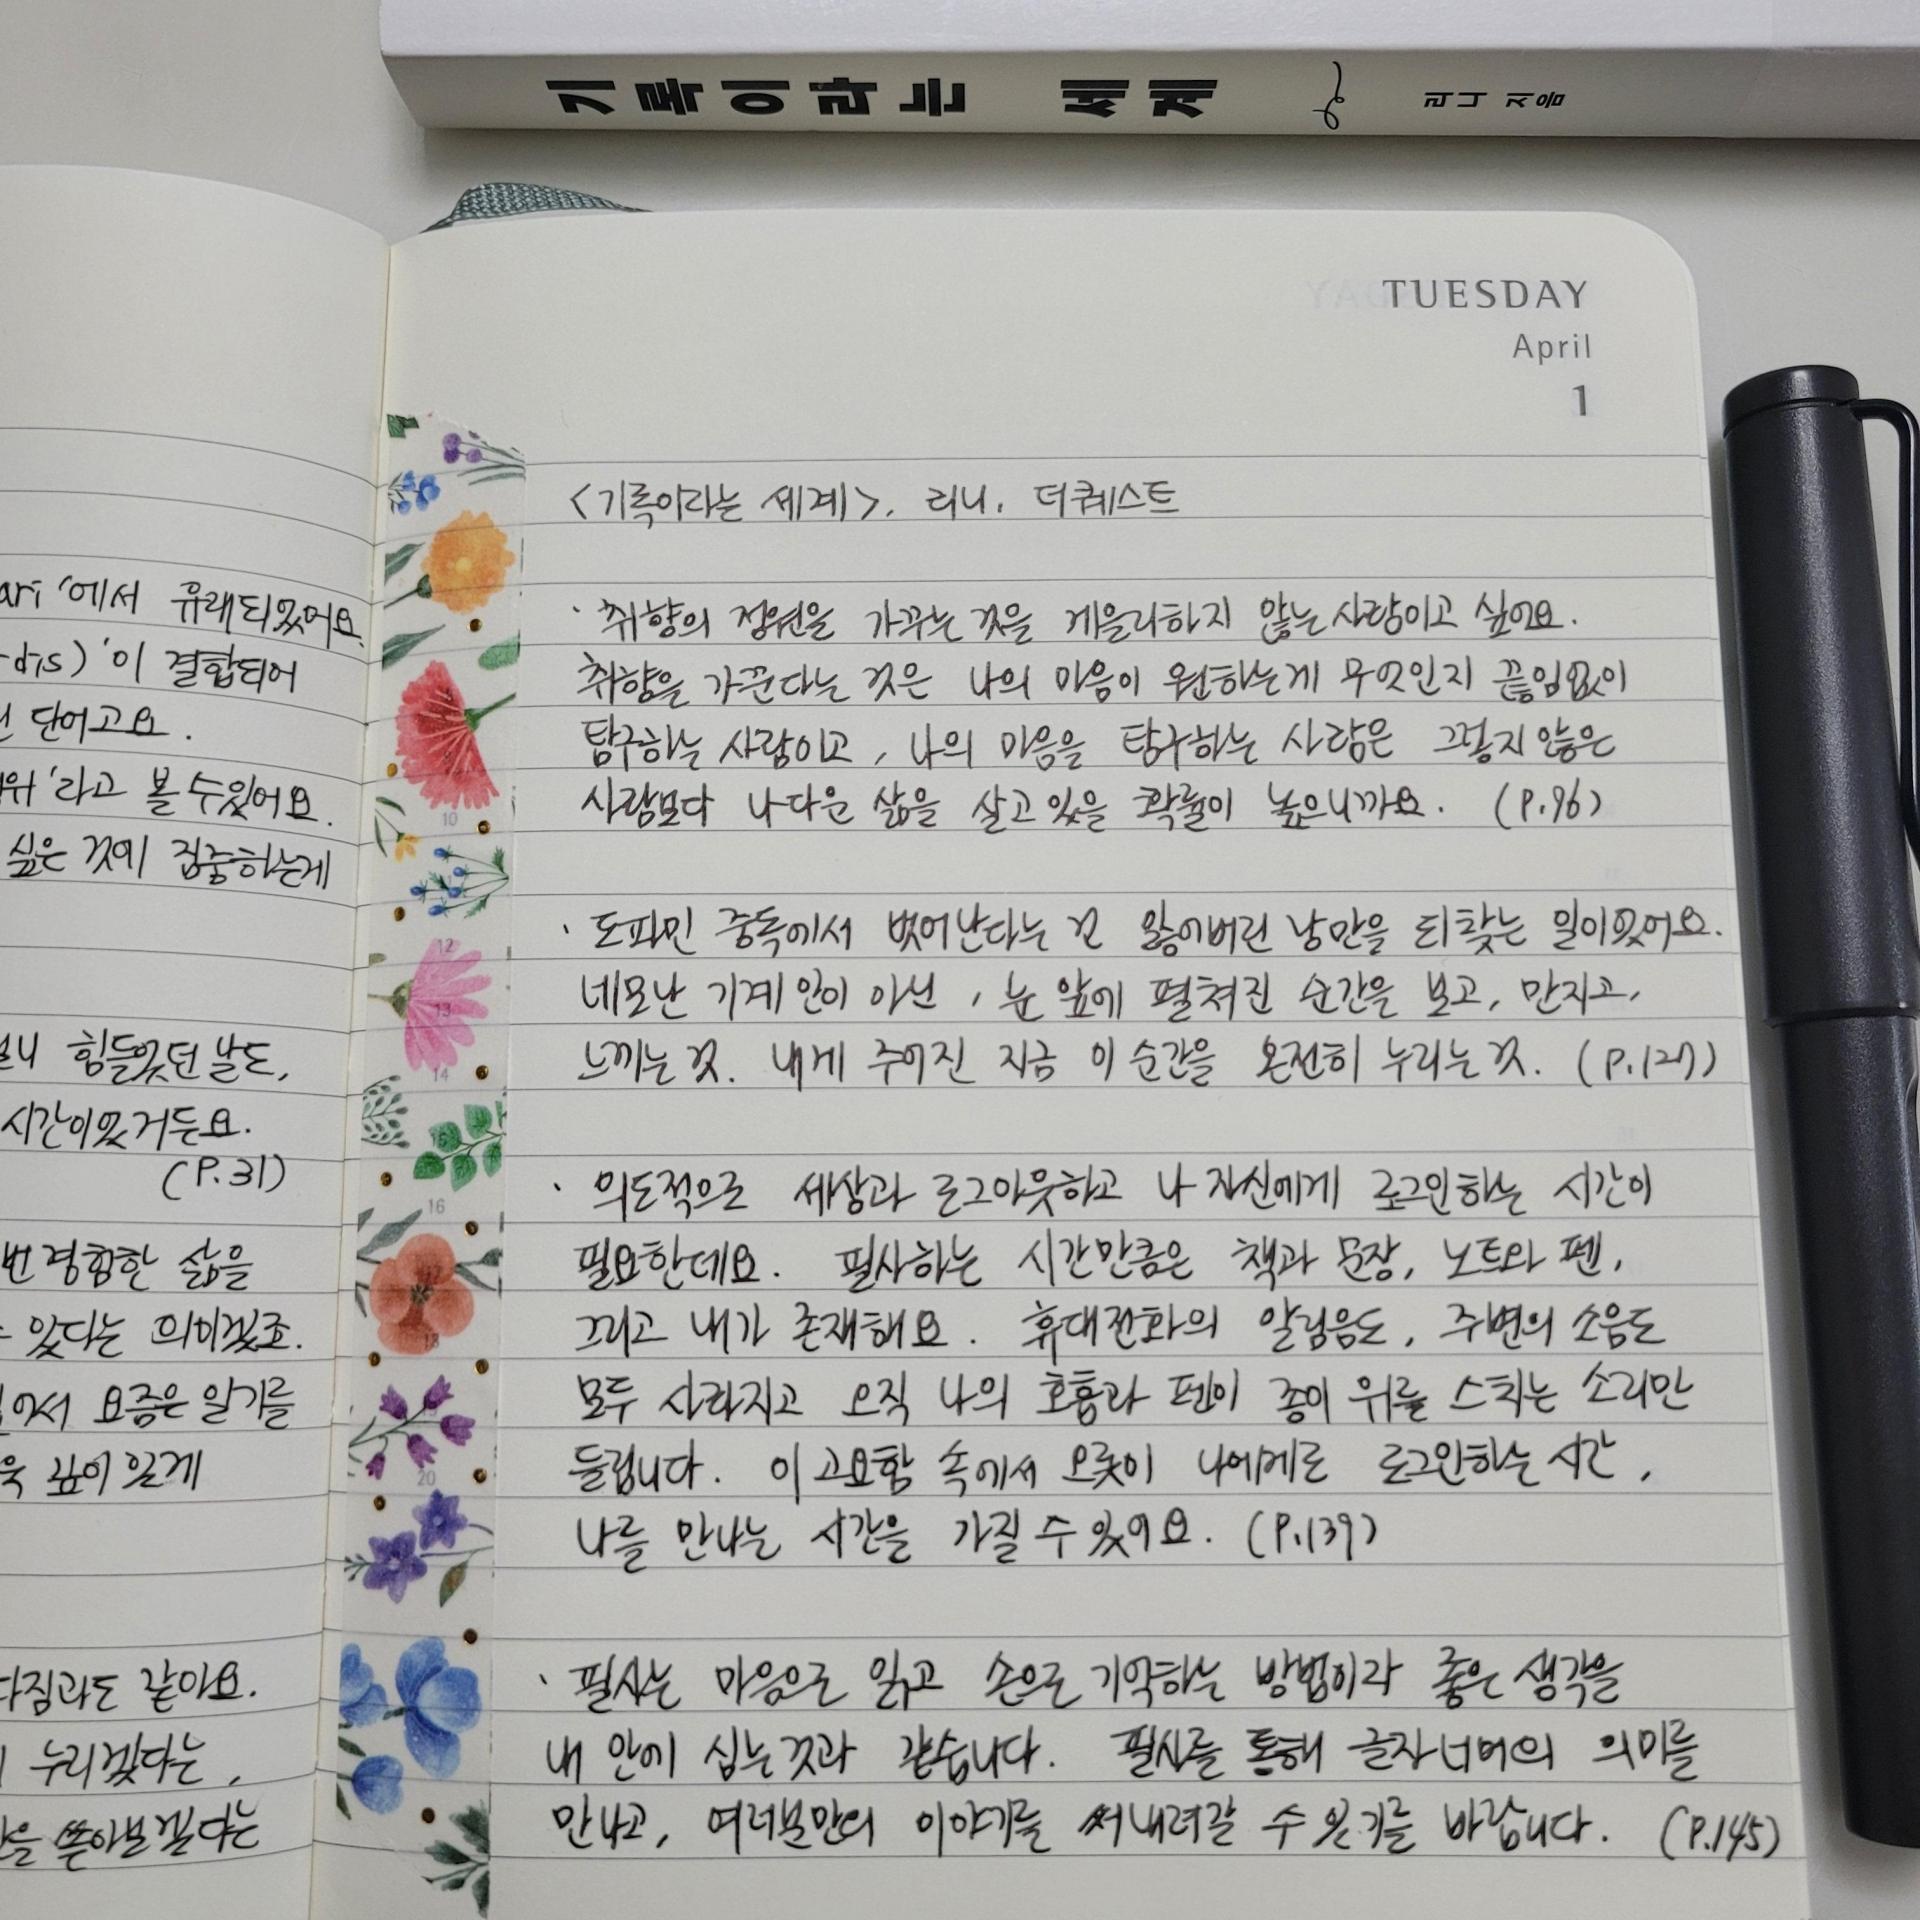 기록이라는 세계 리니 지음
ari '에서 유래되었어요.
-dis)'이 결합되어
단어고요.
'라고 볼 수 있어요.
싶은 것에 집중하는게
힘들었던 날도,
시간이었거든요.
(P.31)
번 경험한 삶을
있다는 의미겠죠.
요즘은 일기를
깊이 있게
다짐과도 같아요.
누리겠다는,
쫓아보겠다는
TUESDAY
April
1
<기록이라는 세계>, 리니, 더퀘스트
· 취향의 정원을 가꾸는 것을 게을리하지 않는 사람이고 싶어요.
취향을 가꾼다는 것은 나의 마음이 원하는게 무엇인지 끊임없이
탐구하는 사람이고, 나의 마음을 탐구하는 사람은 그렇지 않은
사람보다 나다운 삶을 살고 있을 확률이 높으니까요. (P.96)
· 도파민 중독에서 벗어난다는 건 잃어버린 낭만을 되찾는 일이었어요.
네모난 기계 안이 아닌, 눈 앞에 펼쳐진 순간을 보고, 만지고,
느끼는 것. 내게 주어진 지금 이 순간을 온전히 누리는 것. (P.127)
· 의도적으로 세상과 로그아웃하고 나 자신에게 로그인하는 시간이
필요한데요. 필사하는 시간만큼은 책과 문장, 노트와 펜,
그리고 내가 존재해요. 휴대전화의 알림음도, 주변의 소음도
모두 사라지고 오직 나의 호흡과 펜이 종이 위를 스치는 소리만
들립니다. 이 고요함 속에서 오롯이 나에게로 로그인하는 시간,
나를 만나는 시간을 가질 수 있어요. (P.139)
· 필사는 마음으로 읽고 손으로 기억하는 방법이라 좋은 생각을
내 안에 심는 것과 같습니다. 필사를 통해 글자 너머의 의미를
만나고, 여러분만의 이야기를 써내려갈 수 있기를 바랍니다. (P.145)
10
12
13
14
15
16
18
20